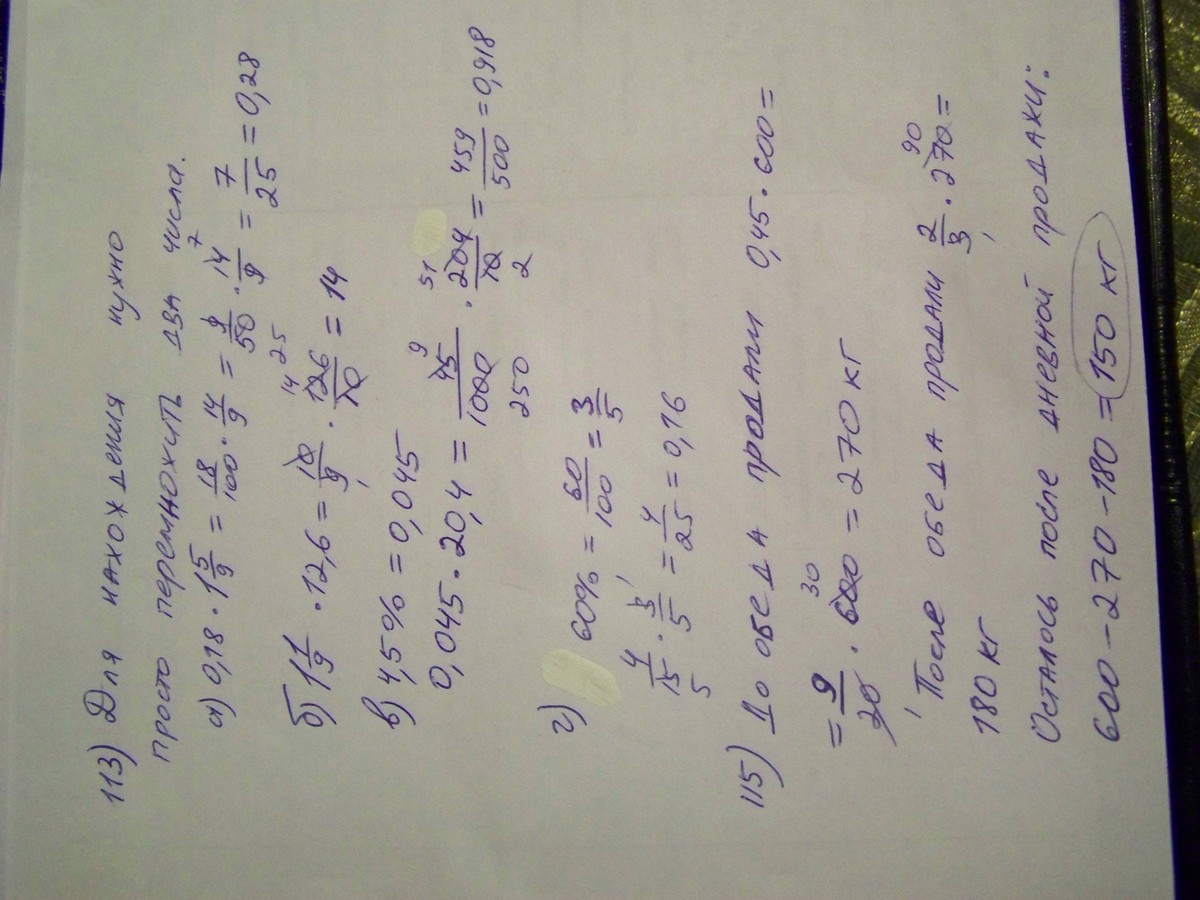 113) Для нахождения нужно
просто перемножить два числа.
а) 0,18 · 1 5/9 = 18/100 · 14/9 = 9/50 · 14/9 = 7/25 = 0,28
7
25
б) 1 1/9 · 12,6 = 10/9 · 126/10 = 14
14
1
в) 4,5% = 0,045
0,045 · 20,4 = 45/1000 · 204/10 = 459/500 = 0,918
9 51
250 2
г) 60% = 60/100 = 3/5
4/15 · 3/5 = 4/25 = 0,16
1
5
115) До обеда продали 0,45 · 600 =
= 9/20 · 600 = 270 кг
30
1
После обеда продали 2/3 · 270 =
90
1
180 кг
Осталось после дневной продажи:
600 - 270 - 180 = 150 кг